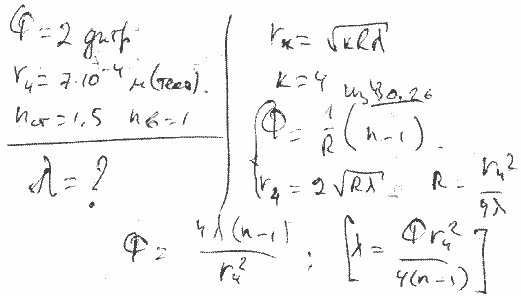 Φ = 2 дптр
r₄ = 7·10⁻⁴ м (тёмн).
nст = 1,5 nв = 1
λ = ?
rк = √kRλ
k = 4
из 30.26
Φ = 1/R (n-1).
r₄ = 2√Rλ R = r₄²/4λ
Φ = 4λ(n-1)/r₄² ; [λ = Φr₄²/4(n-1)]